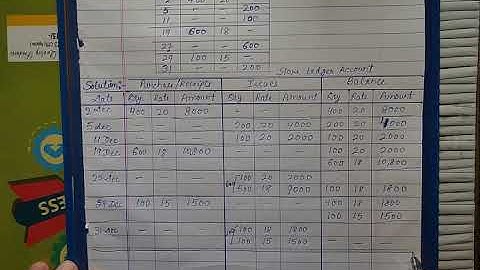 2 400 20
5 — — 200
11 — — 100
19 600 18 —
27 — — 600
29 100 15 —
31 — — 200
Store Ledger Account
Solution:- Purchase/Receipts Issues Balance
Date Qty Rate Amount Qty Rate Amount Qty Rate Amount
2 Dec 400 20 8000 — — — 400 20 8000
5 Dec — — — 200 20 4000 200 20 4000
11 Dec — — — 100 20 2000 100 20 2000
19 Dec 600 18 10,800 — — — 100 20 2000
600 18 10,800
— — — 100 20 2000
500 18 9000 100 18 1800
29 Dec 100 15 1500 — — — 100 18 1800
100 15 1500
31 Dec — — — 100 18 1800
100 15 1500 — — —
ESS